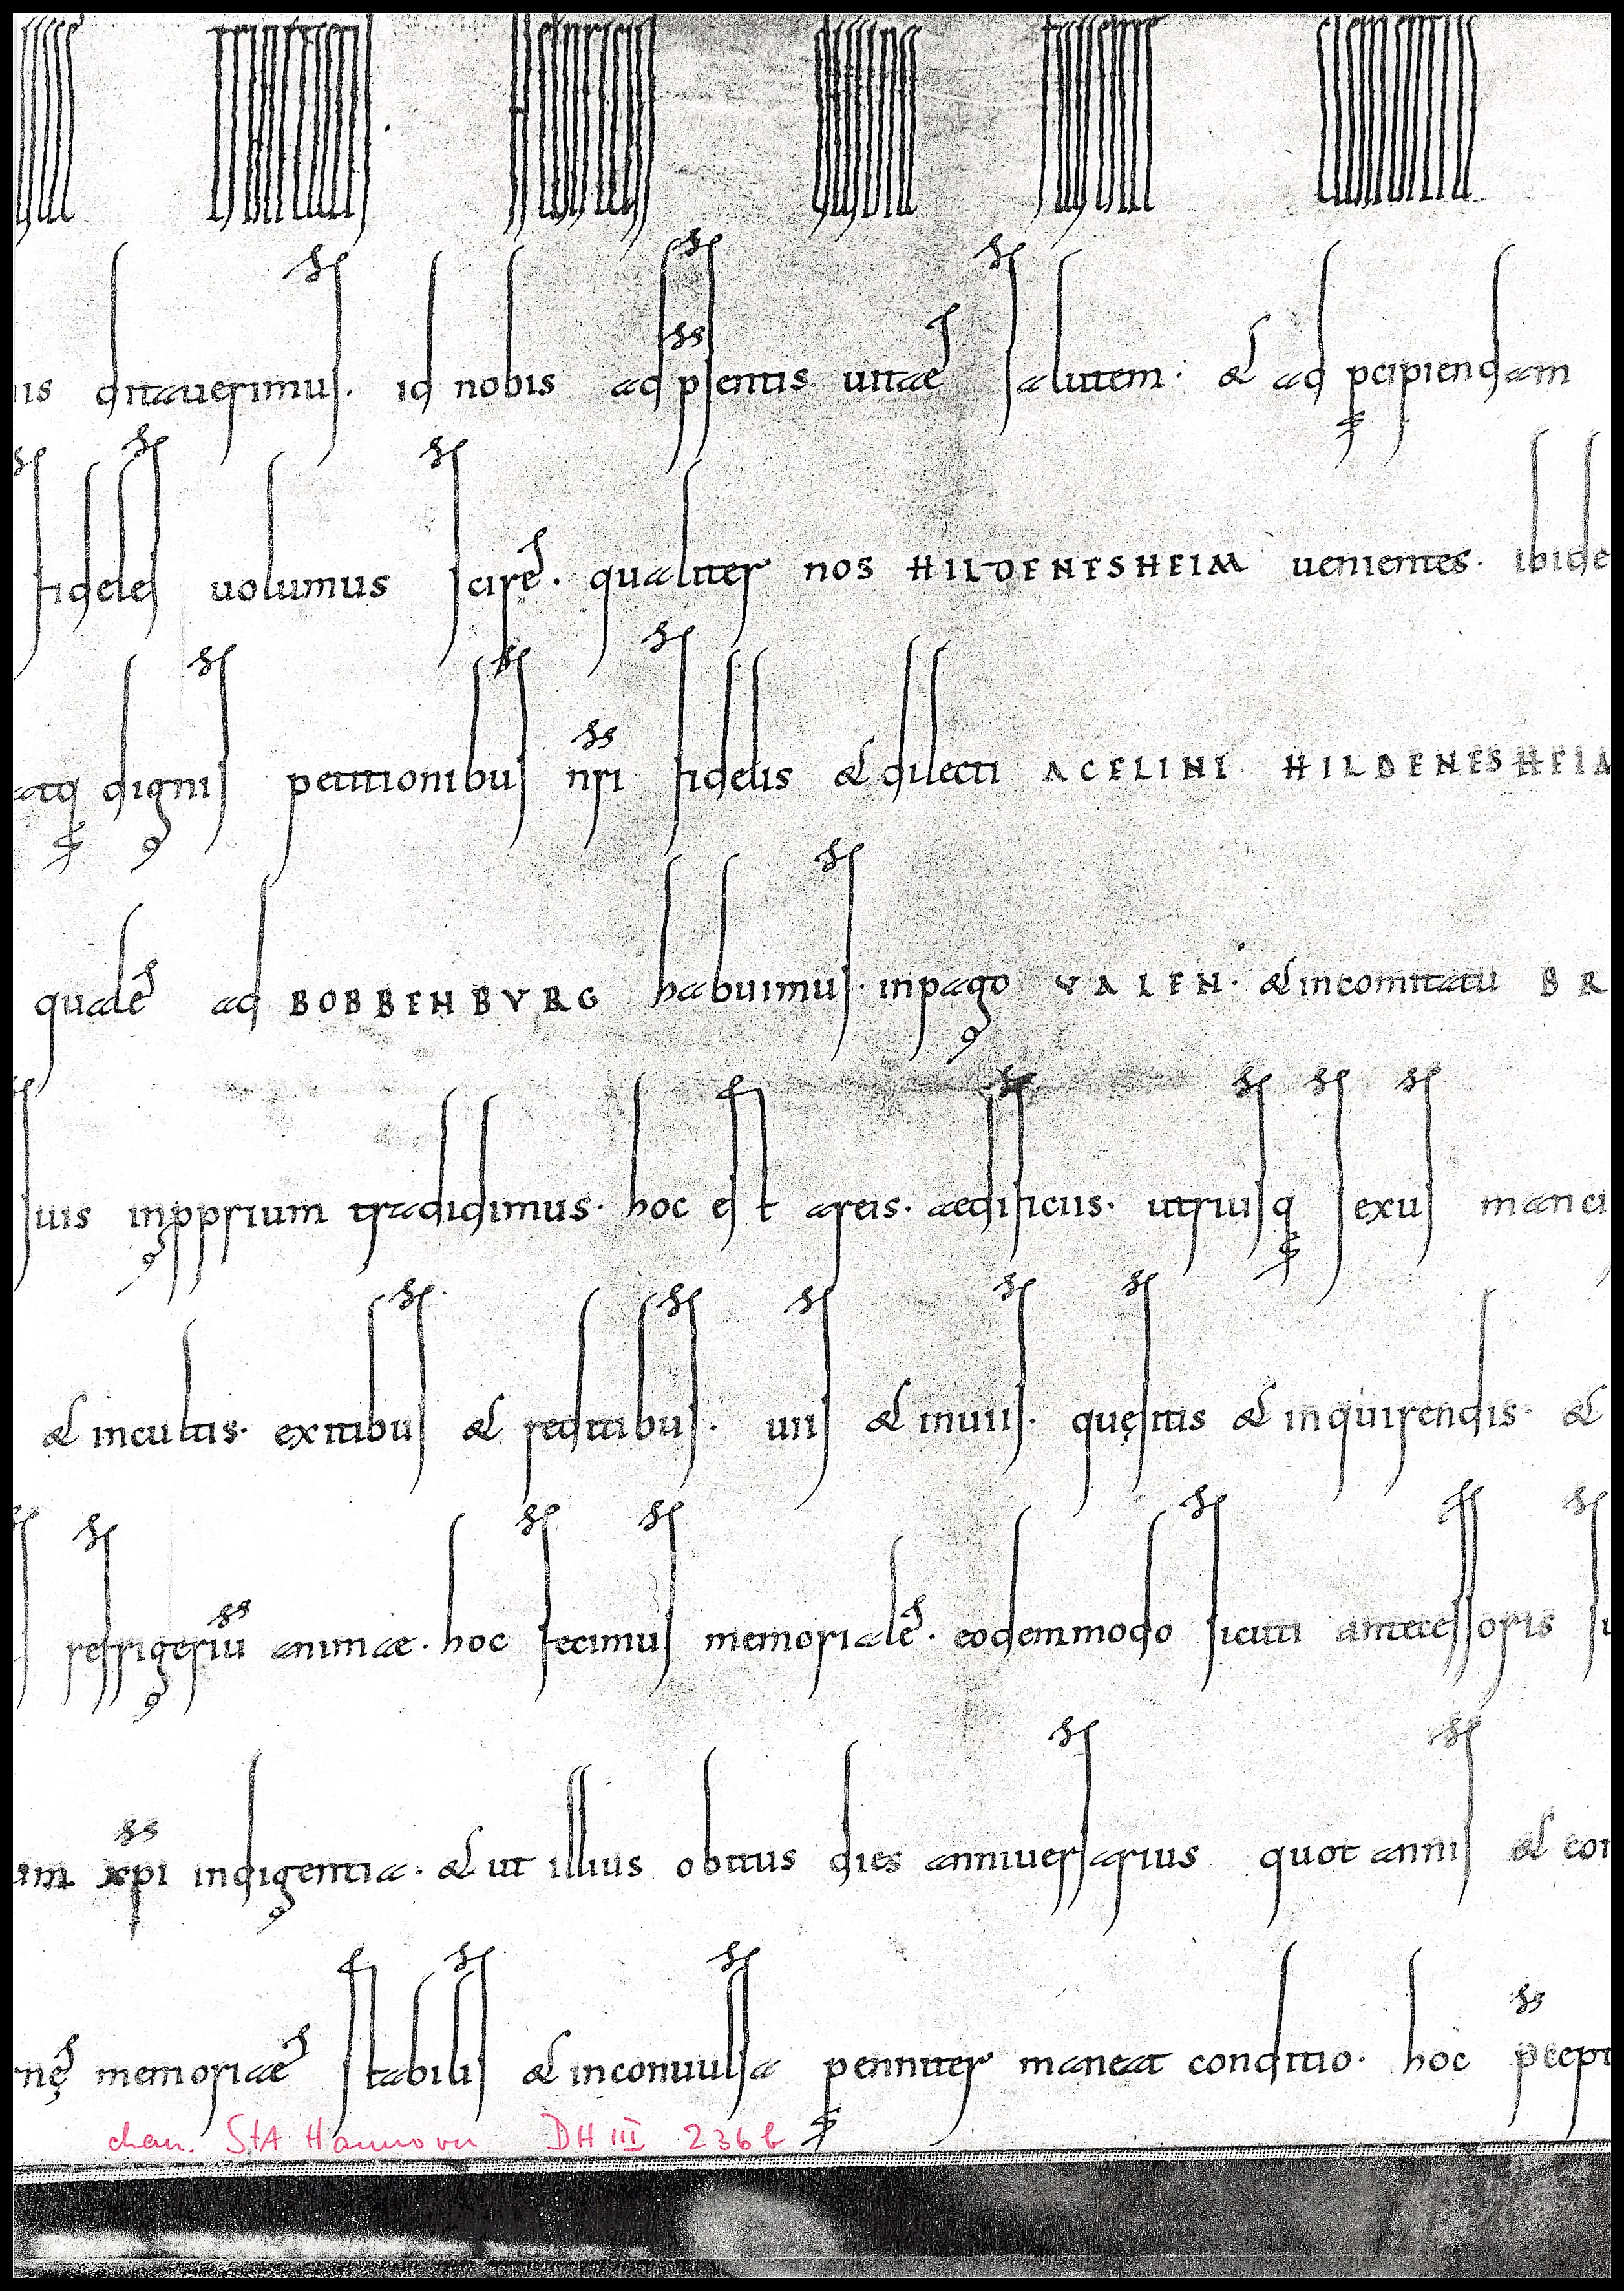 trinitatis heinricus divina favente clementia
is ditauerimus. id nobis ad psentis uitae salutem. & ad pcipiendam
fideles uolumus scire. qualiter nos HILDENESHEIM uenientes. ibide
atq dignis petitionibus nri fidelis & dilecti ACELINI HILDENESHEIM
quale ad BOBBENBVRG habuimus. inpago VALEN. & incomitatu BR
suis inpprium tradidimus. hoc est areis. aedificiis. utriusq sexus manci
& incultis. exitibus & reditibus. uiis & inuiis. quęsitis & inquirendis. &
refrigeriū animae. hoc fecimus memoriale. eodemmodo sicuti antecessoris su
am xpi indigentia. & ut illius obitus dies anniuersarius quot annis & con
rnę memoriae stabilis & inconuulsa penniter maneat conditio. hoc pcept
chan. StA Hannover DH III 236 b